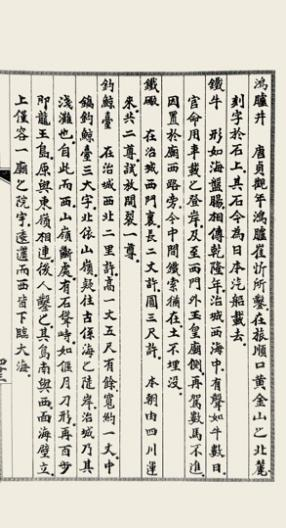 鴻臚井　唐貞觀年鴻臚崔忻所鑿在旅順口黃金山之北麓
刻字於石上其石今為日本汽船載去
鐵牛　形如海盤腸相傳乾隆年治城西海中有聲如牛數日
官命用車載之登岸及至西門外玉皇廟側再駕數馬不進
因置於廟西路旁今中間鐵索猶在土不埋沒
鐵礮　在治城西門裏長二丈許圓三尺許　本朝由四川運
來共二尊試放開裂一尊
釣鯨臺　在治城西北二里許高一丈五尺有餘寬約一丈中
鎬釣鯨臺三大字北依山嶺疑往古係海之陡岸治城乃其
淺灘也自此而西山嶺斷處有石聲時如偃月刀形再百步
即龍王島原與東嶺相連後人鑿之其島南與西面海壁立
上僅容一廟之院宇遠遷而西皆下臨大海